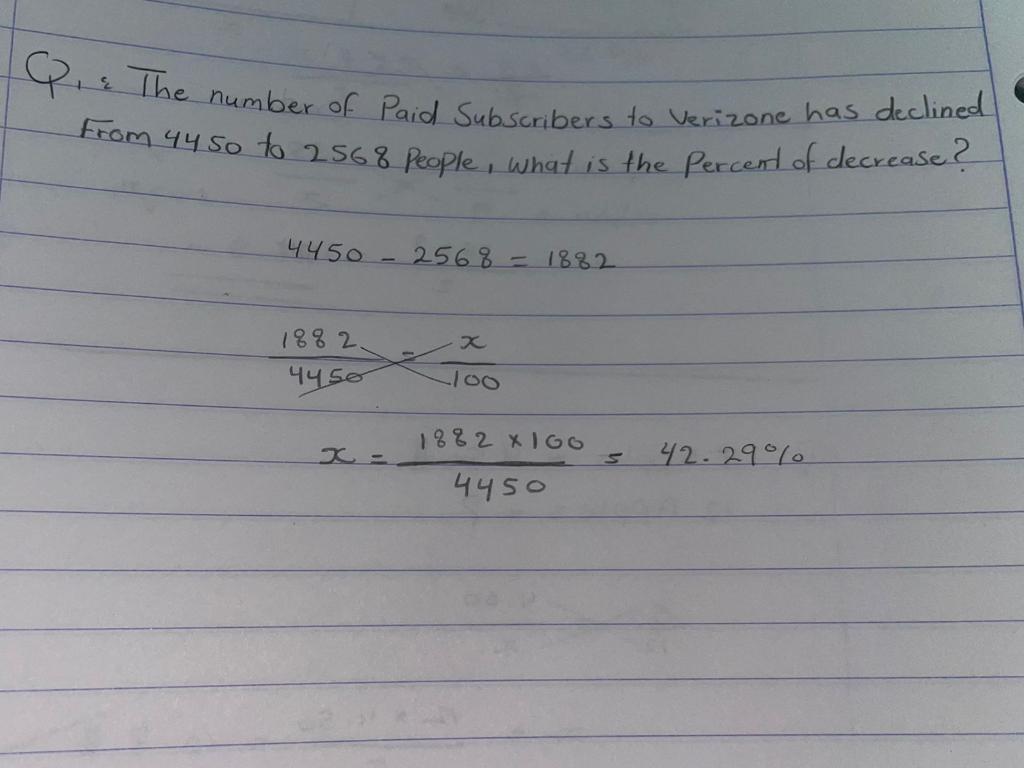 Q1: The number of Paid Subscribers to Verizone has declined
From 4450 to 2568 People, what is the Percent of decrease?
4450 - 2568 = 1882
1882 = x
4450 100
x = 1882 × 100 = 42.29%
4450